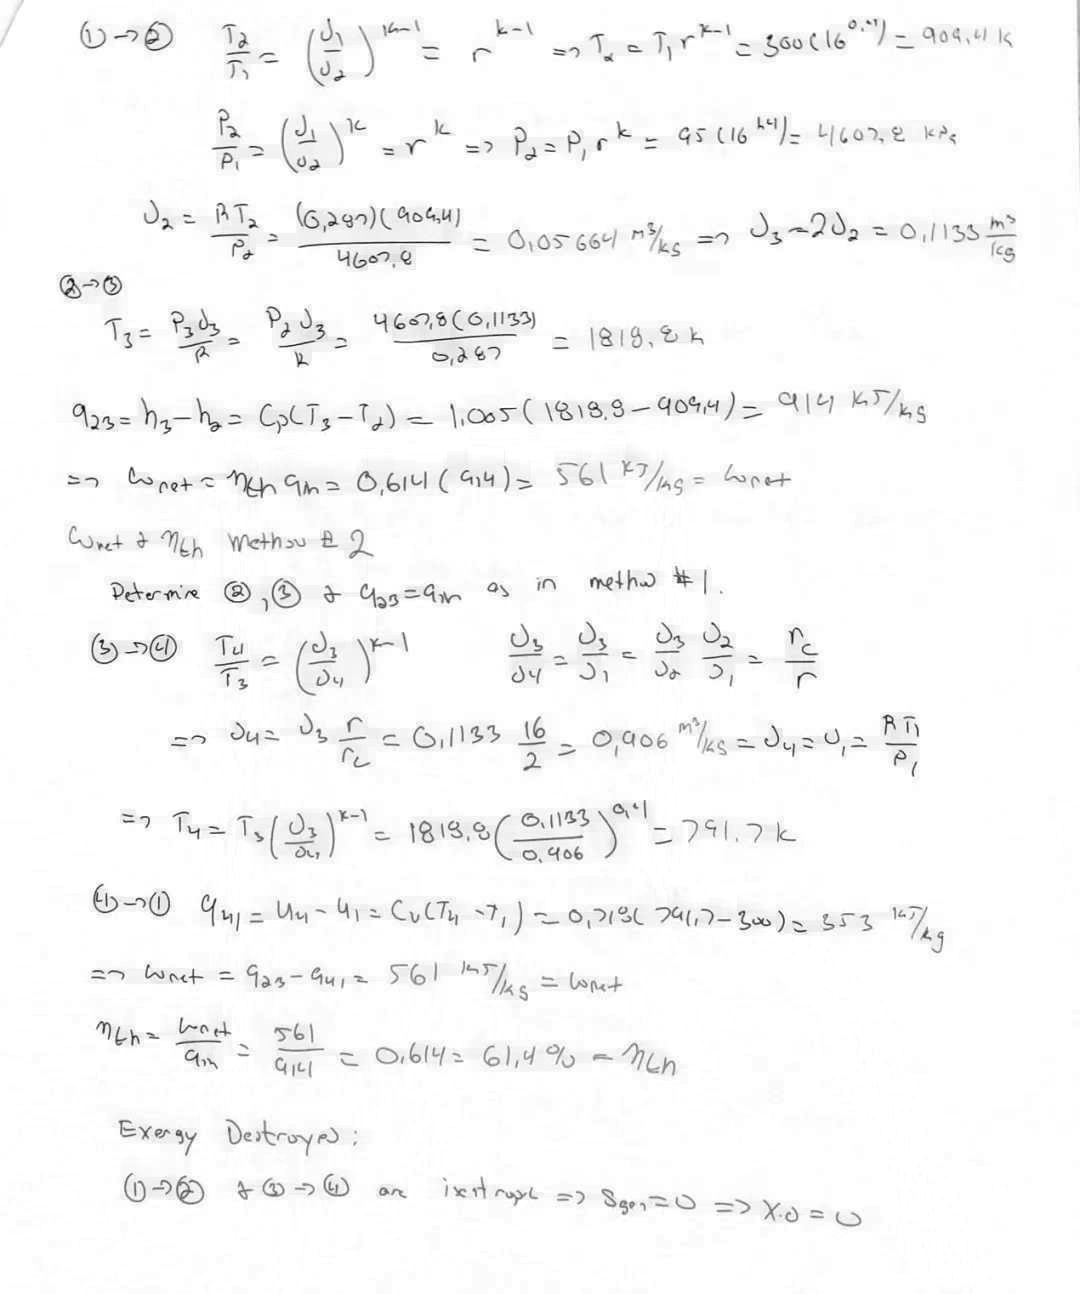 ①→② T2/T1 = (υ1/υ2)^k-1 = r^k-1 => T2 = T1 r^k-1 = 300(16^0.4) = 909,4 K
P2/P1 = (υ1/υ2)^k = r^k => P2 = P1 r^k = 95(16^1.4) = 4607,8 kPa
υ2 = RT2/P2 = (0,287)(909,4)/4607,8 = 0,05664 m³/kg => υ3 = 2υ2 = 0,1133 m³/kg
②→③
T3 = P3υ3/R = P2υ3/R = 4607,8(0,1133)/0,287 = 1818,8 K
q23 = h3-h2 = Cp(T3-T2) = 1,005(1818,8-909,4) = 914 kJ/kg
=> wnet = ηth qin = 0,614(914) = 561 kJ/kg = wnet
wnet & ηth Method # 2
Determine ②,③ & q23=qin as in method #1.
③→④ T4/T3 = (υ3/υ4)^k-1 υ3/υ4 = υ3/υ1 = υ3/υ2 υ2/υ1 = rc/r
=> υ4 = υ3 r/rc = 0,1133 16/2 = 0,906 m³/kg = υ4 = υ1 = RT1/P1
=> T4 = T3(υ3/υ4)^k-1 = 1818,8(0.1133/0.906)^0,4 = 791.7 K
④→① q41 = u4-u1 = Cv(T4-T1) = 0,718(791,7-300) = 353 kJ/kg
=> wnet = q23-q41 = 561 kJ/kg = wnet
ηth = wnet/qin = 561/914 = 0,614 = 61,4% = ηth
Exergy Destroyed:
①→② & ③→④ are isentropic => Sgen=0 => X.D=0